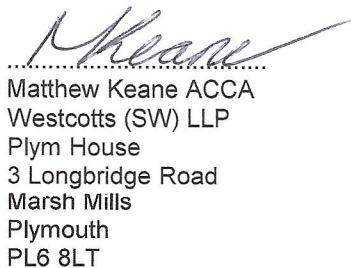 MKeane
Matthew Keane ACCA
Westcotts (SW) LLP
Plym House
3 Longbridge Road
Marsh Mills
Plymouth
PL6 8LT